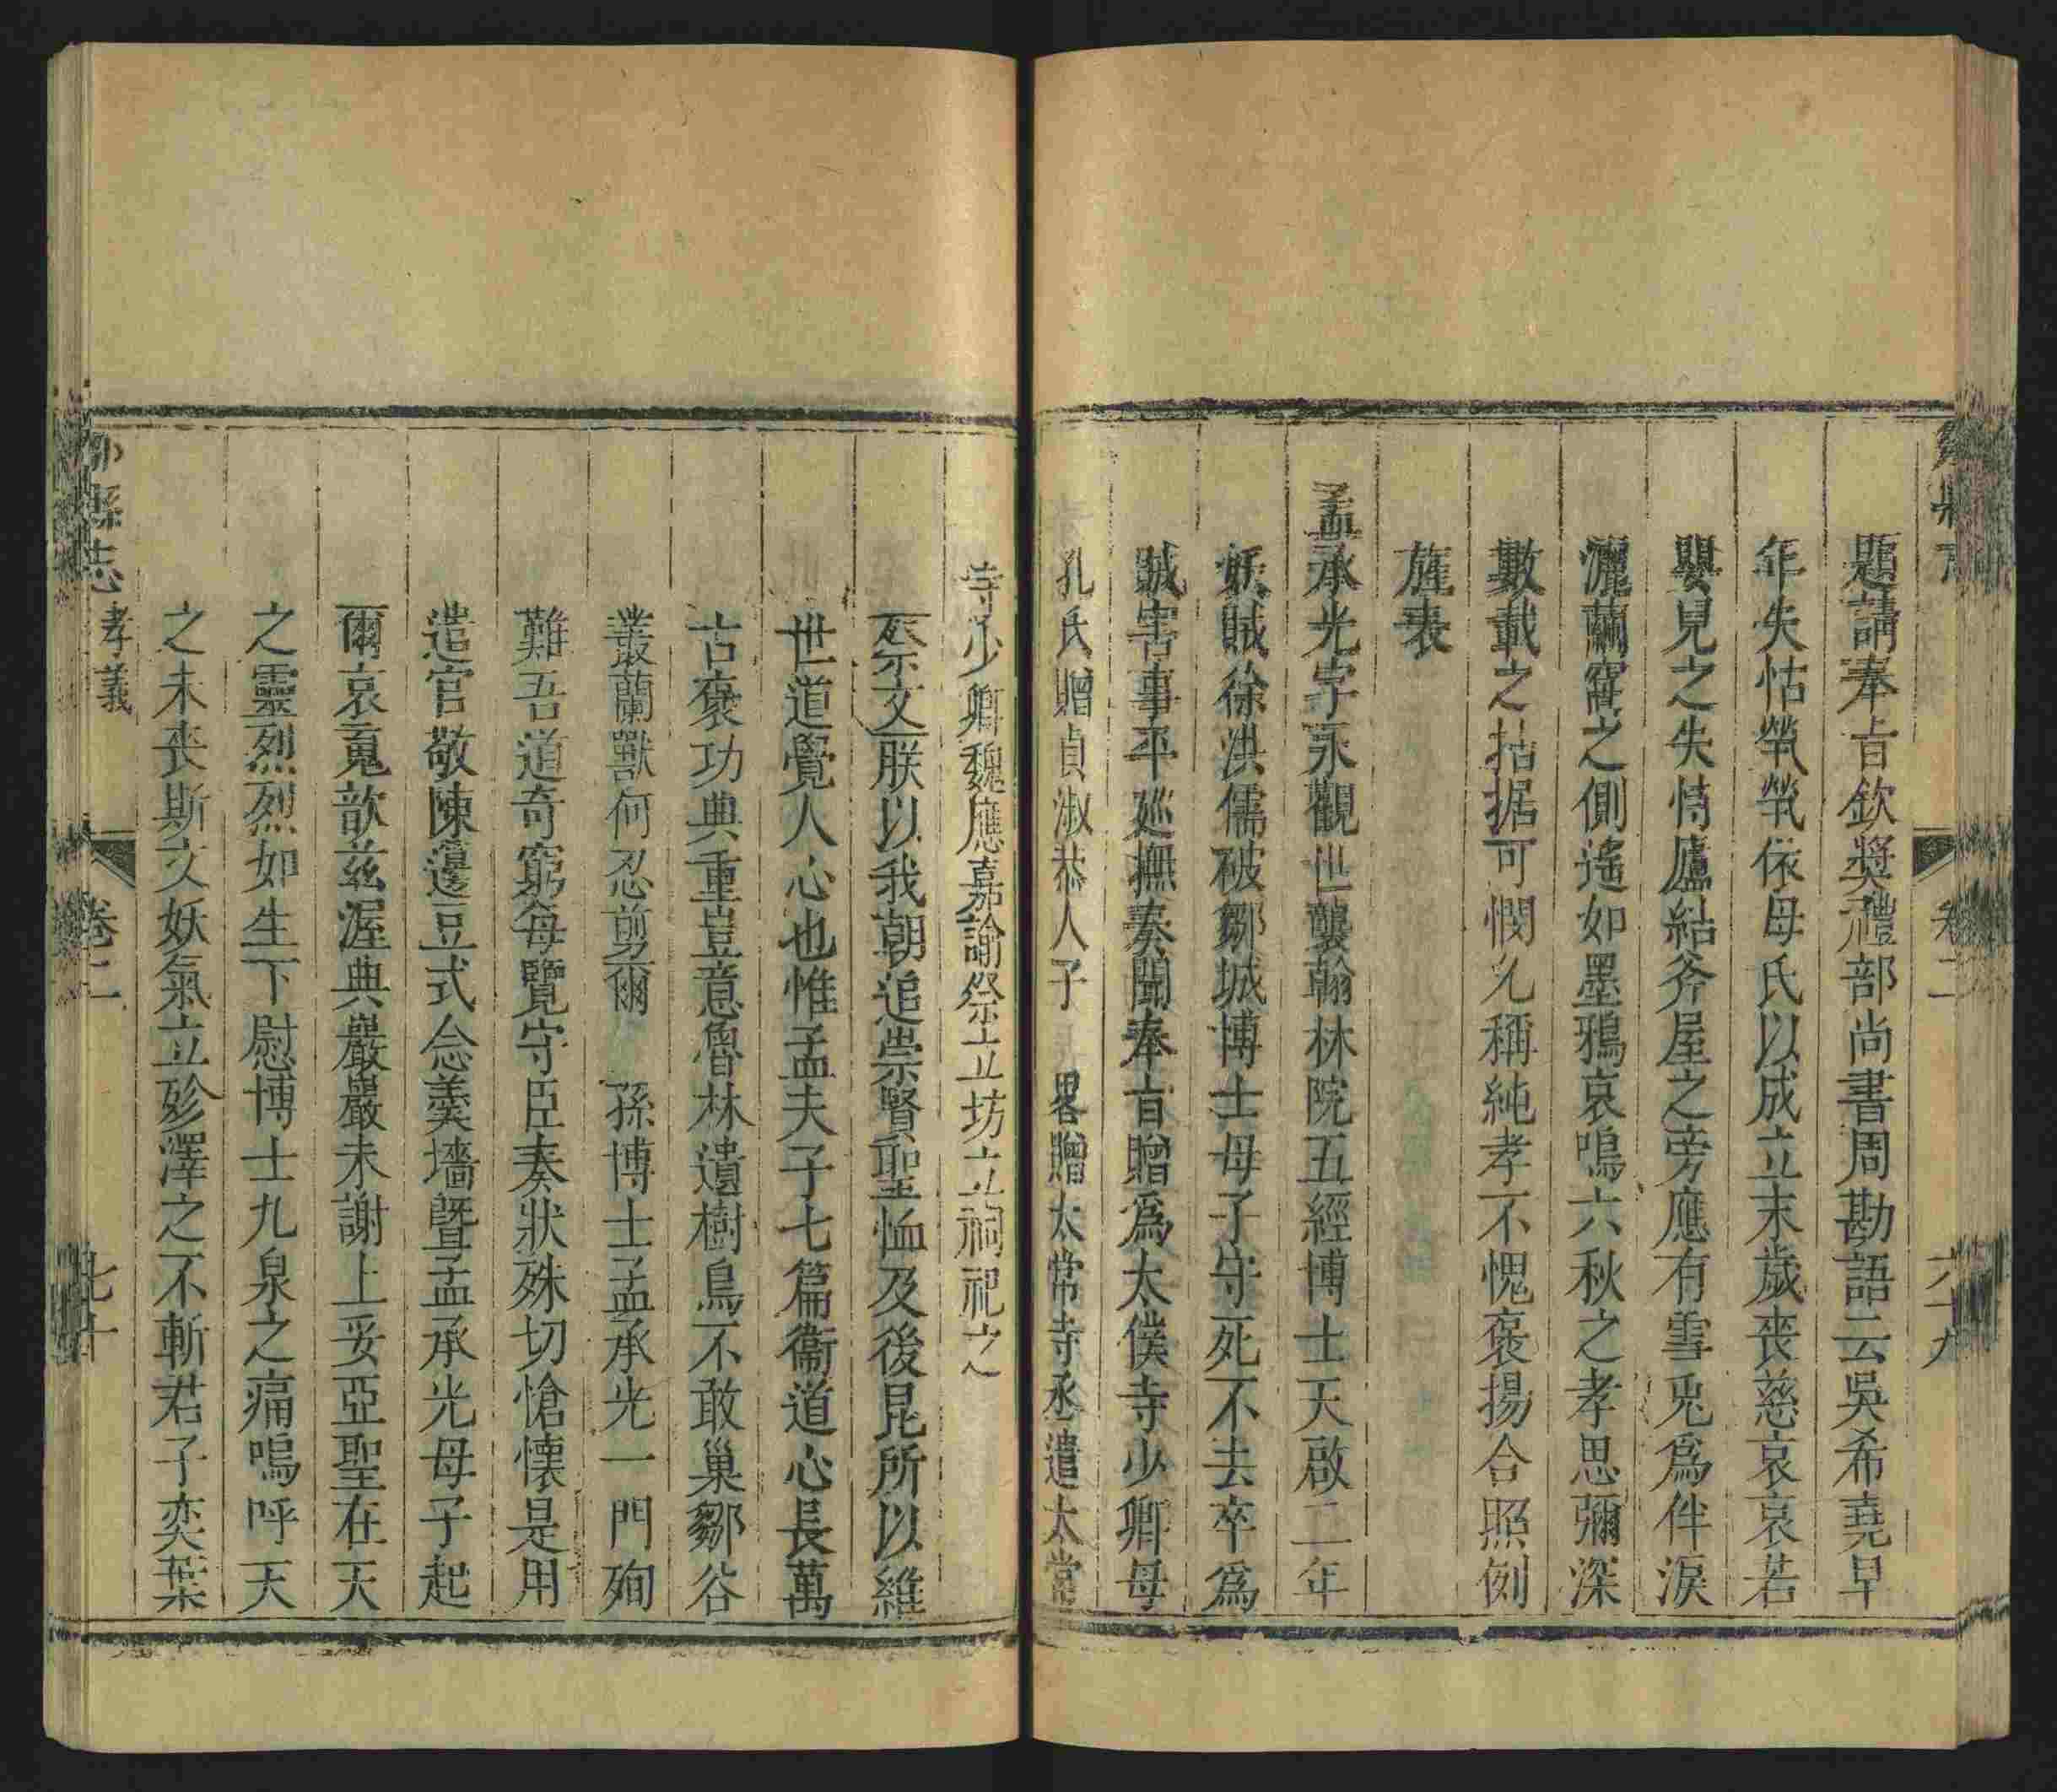 題請奉旨欽奬禮部尚書周勘語云吳希堯早
年失怙煢煢依母氏以成立末歲喪慈哀哀若
嬰兒之失恃廬結斧屋之旁應有雪兎爲伴淚
灑蘭窩之側遙如墨鴉哀鳴六秋之孝思彌深
數載之拮据可憫允稱純孝不愧褒揚合照例
旌表
孟承光字永觀世襲翰林院五經博士天啟二年
妖賊徐洪儒破鄒城博士母子守死不去卒爲
賊害事平廵撫奏聞奉旨贈爲太僕寺少卿母
孔氏贈貞淑恭人子 畧贈太常寺丞遣太常
寺少卿魏應嘉諭祭立坊立祠祀之
祭文朕以我朝追崇賢聖恤及後昆所以維
世道覺人心也惟孟夫子七篇衞道心長萬
古褒功典重豈意魯林遺樹鳥不敢巢鄒谷
叢蘭獸何忍剪爾 孫博士孟承光一門殉
難吾道奇窮每覽守臣奏狀殊切愴懷是用
遣官敬陳籩豆式念羹墻暨孟承光母子起
爾哀䰟歆茲渥典巖巖未謝上妥亞聖在天
之靈烈烈如生下慰博士九泉之痛嗚呼天
之未喪斯文妖氣立殄澤之不斬君子奕葉
縣志 孝義 卷二 七十